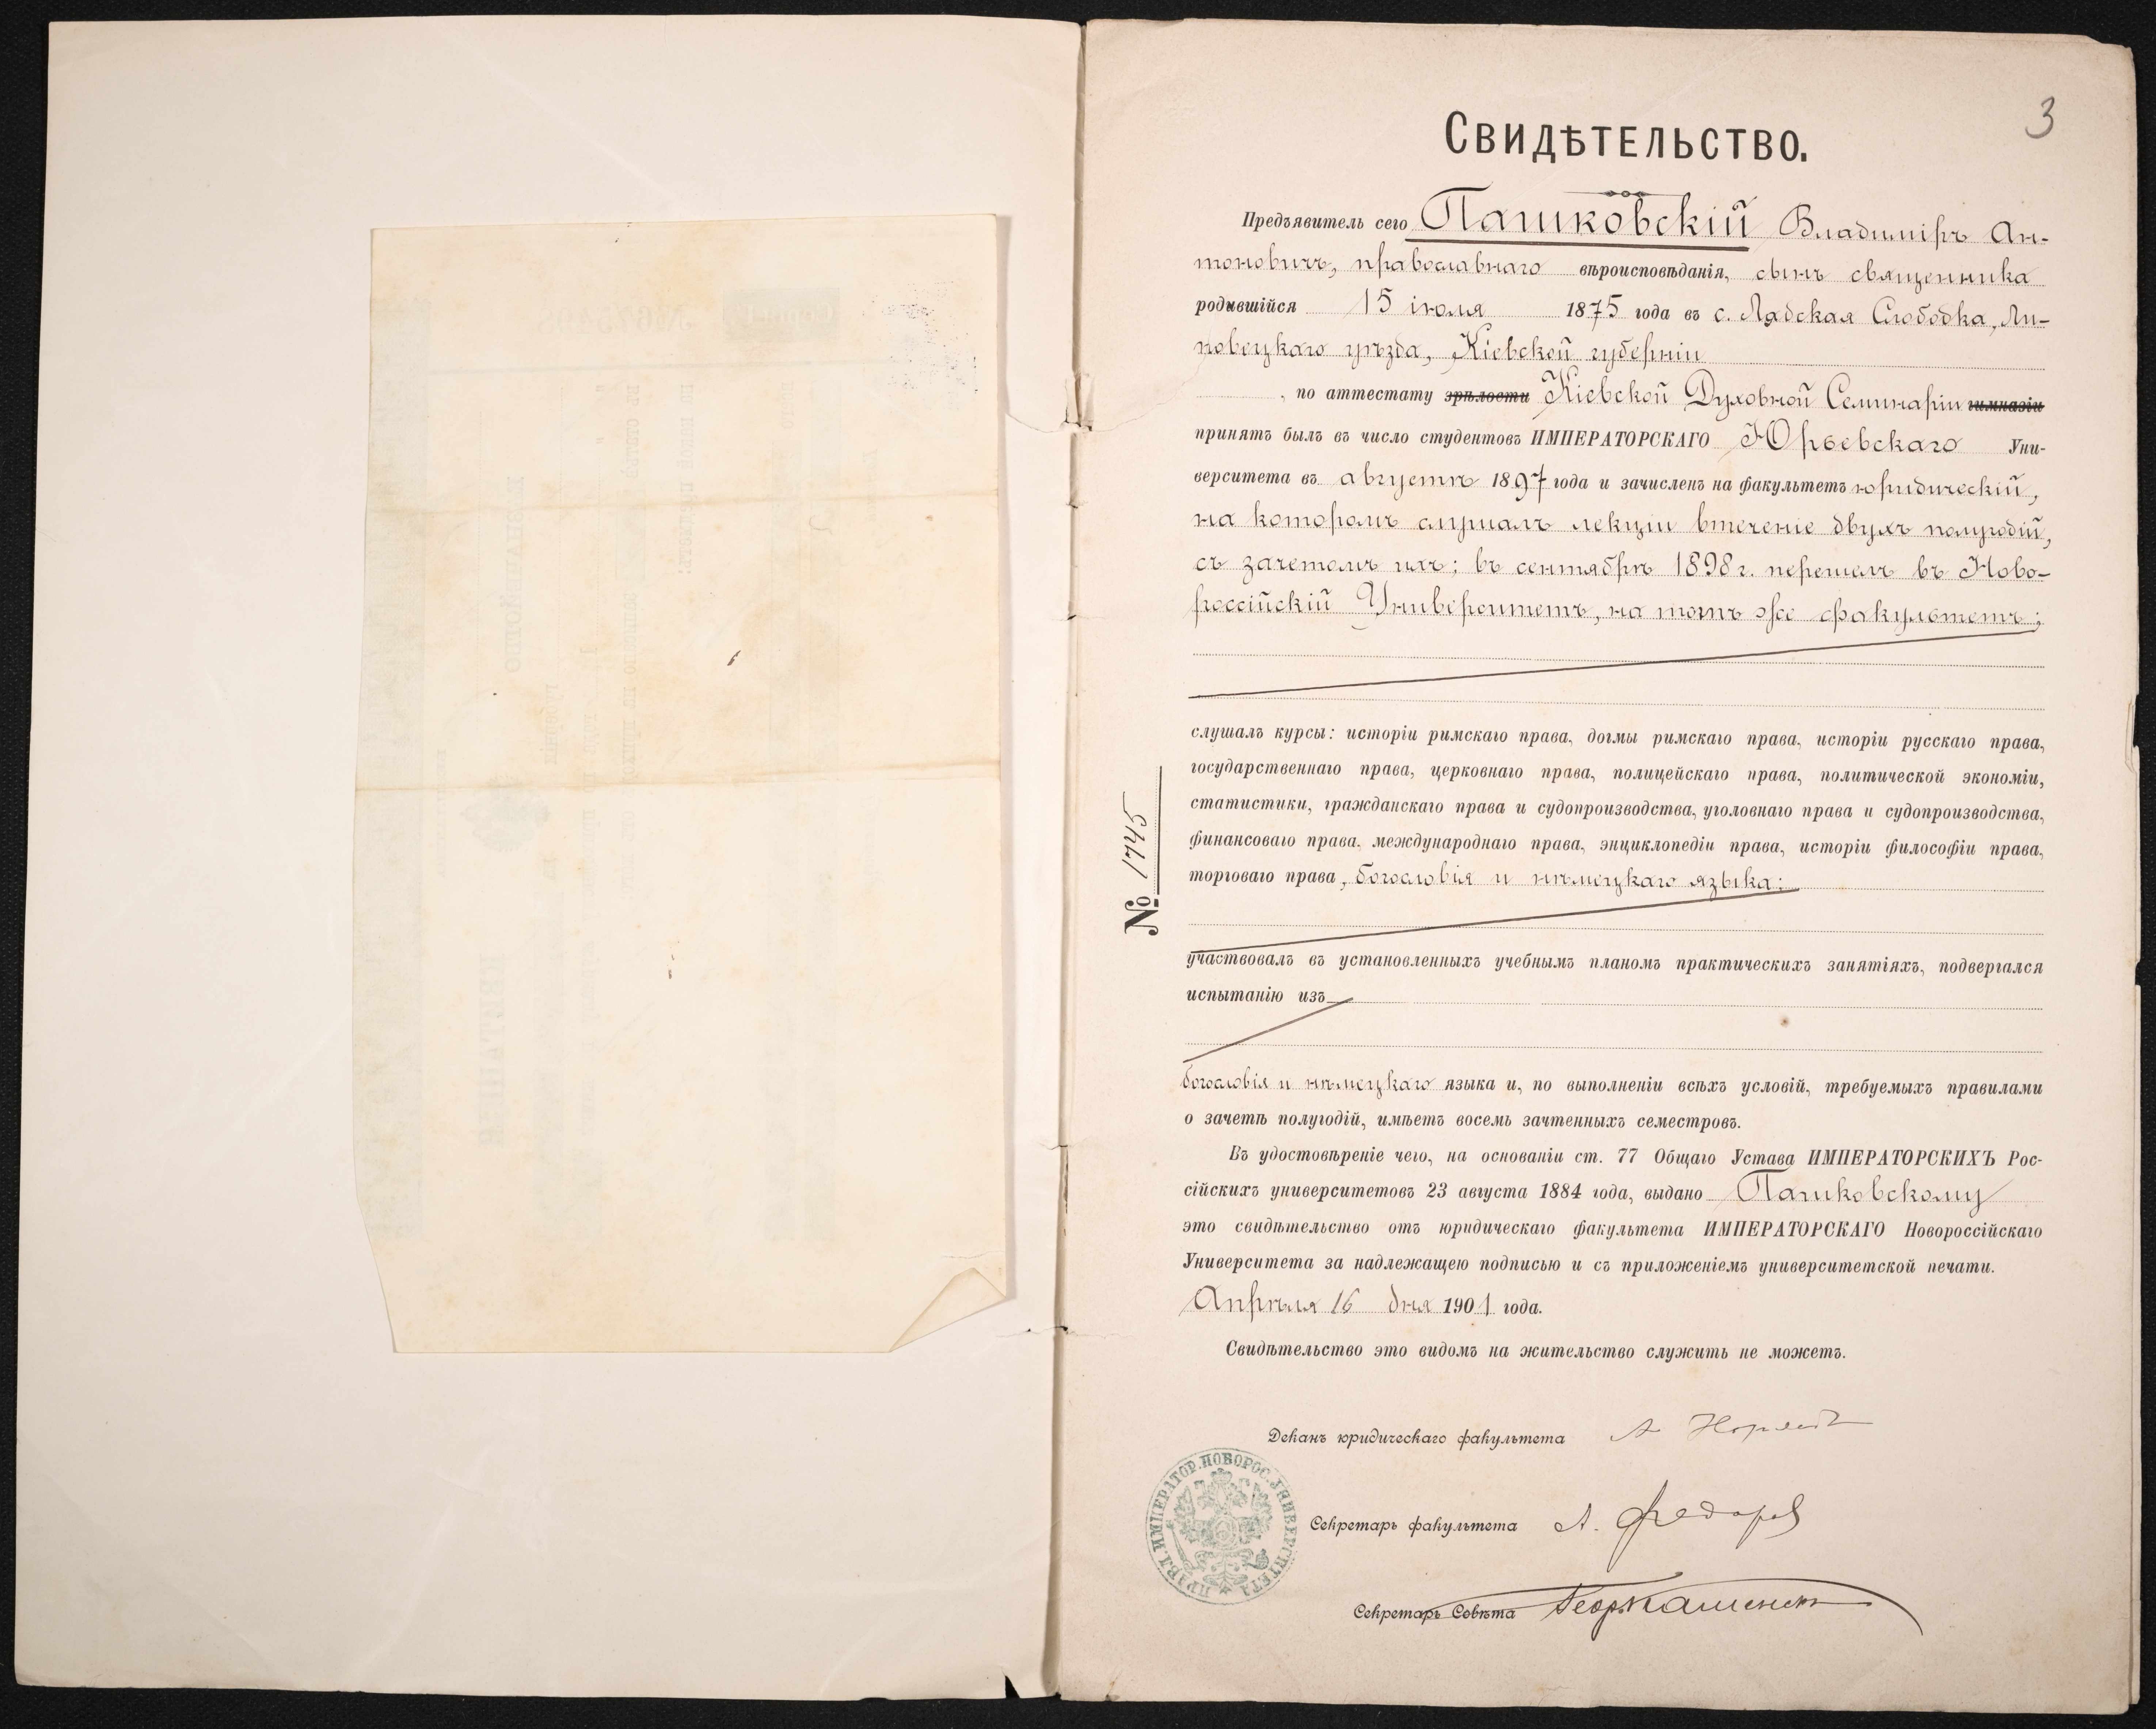 3
Свидѣтельство.
Предъявитель сего Пашковскій Владиміръ Ан-
тоновичъ, православнаго вѣроисповѣданія, сынъ священника
родившійся 15 іюля 1875 года въ с. Лядская Слободка, Ли-
повецкаго уѣзда, Кіевской губерніи
, по аттестату зрѣлости Кіевской Духовной Семинаріи гимназіи
принятъ былъ въ число студентовъ ИМПЕРАТОРСКАГО Юрьевскаго Уни-
верситета въ августѣ 1897 года и зачисленъ на факультетъ юридическій,
на которомъ слушалъ лекціи втеченіе двухъ полугодій,
съ зачетомъ ихъ; въ сентябрѣ 1898 г. перешелъ въ Ново-
россійскій Университетъ, на тотъ же факультетъ;
слушалъ курсы: исторіи римскаго права, догмы римскаго права, исторіи русскаго права,
государственнаго права, церковнаго права, полицейскаго права, политической экономіи,
статистики, гражданскаго права и судопроизводства, уголовнаго права и судопроизводства,
финансоваго права, международнаго права, энциклопедіи права, исторіи философіи права,
торговаго права, богословія и нѣмецкаго языка;
№ 1745
участвовалъ въ установленныхъ учебнымъ планомъ практическихъ занятіяхъ, подвергался
испытанію изъ
богословія и нѣмецкаго языка и, по выполненіи всѣхъ условій, требуемыхъ правилами
о зачетѣ полугодій, имѣетъ восемь зачтенныхъ семестровъ.
Въ удостовѣреніе чего, на основаніи ст. 77 Общаго Устава ИМПЕРАТОРСКИХЪ Рос-
сійскихъ университетовъ 23 августа 1884 года, выдано Пашковскому
это свидѣтельство отъ юридическаго факультета ИМПЕРАТОРСКАГО Новороссійскаго
Университета за надлежащею подписью и съ приложеніемъ университетской печати.
Апрѣля 16 дня 1901 года.
Свидѣтельство это видомъ на жительство служить не можетъ.
Деканъ юридическаго факультета А
Секретарь факультета А. Федоров
Секретарь Совѣта
ПРАВЛ. ИМПЕРАТОР. НОВОРОС. УНИВЕРСИТЕТА